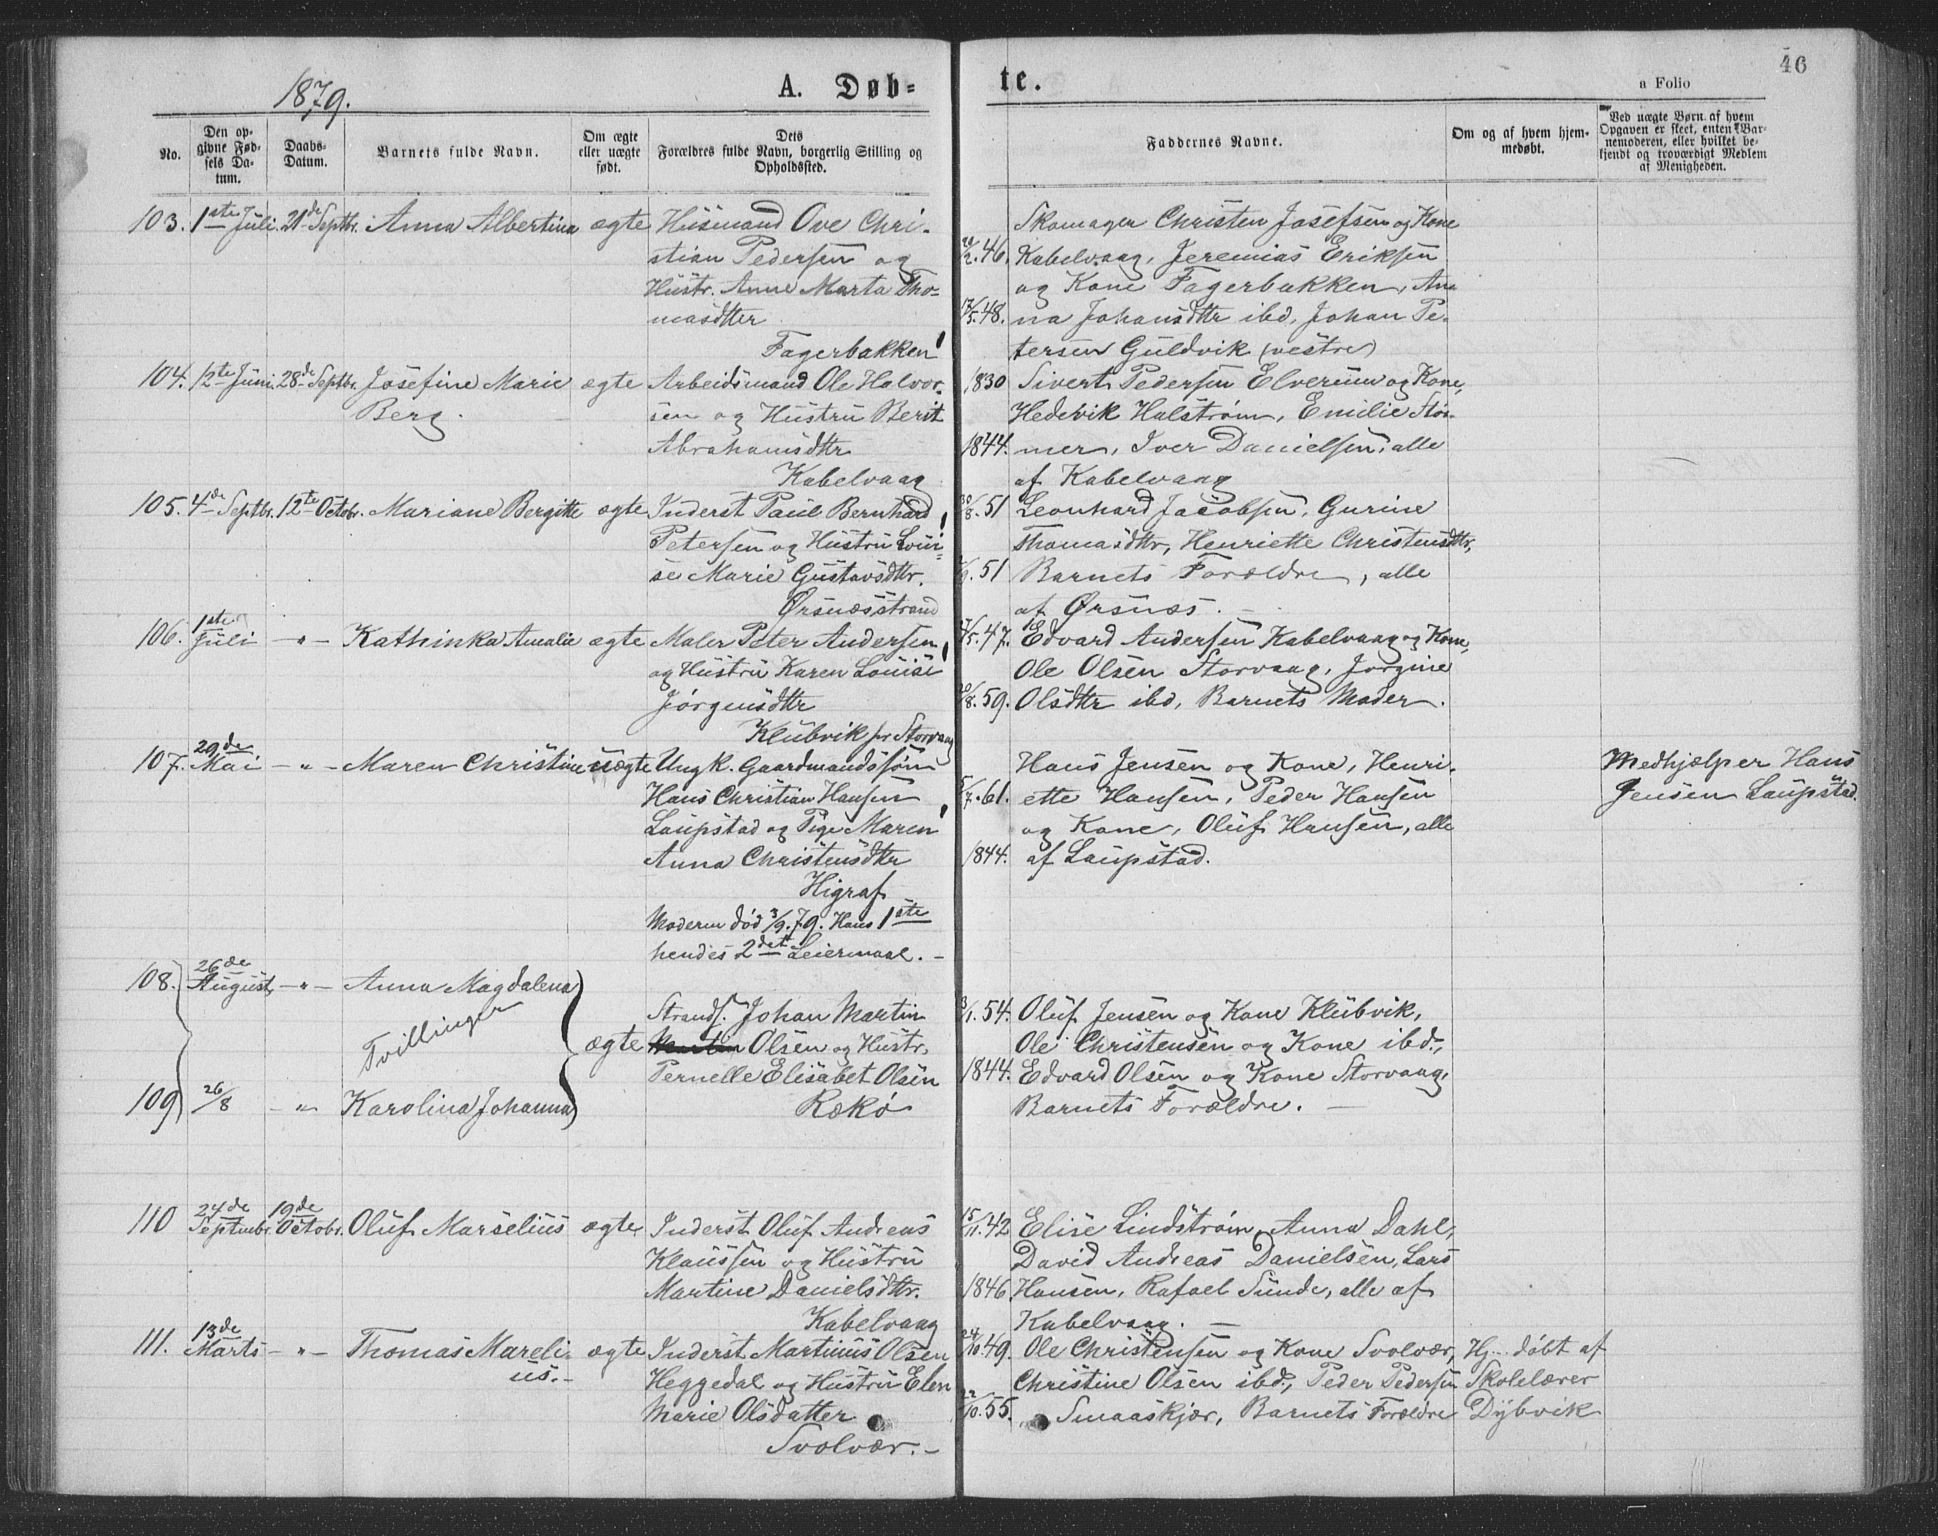 46
1879.
A. Døb=
te.
a Folio
No.
Den op-
givne Fød-
sels Da-
tum.
Daabs-
Datum.
Barnets fulde Navn.
Om ægte
eller uægte
født.
Dets
Forældres fulde Navn, borgerlig Stilling og
Opholdssted.
Faddernes Navne.
Om og af hvem hjem-
medøbt.
Ved uægte Børn af hvem
Opgaven er skeet, enten Bar-
nemoderen, eller hvilket be-
kjendt og troværdigt Medlem
af Menigheden.
103. 1ste Juli 21de Septbr. Anna Albertina ægte Husmand Ove Chri-
stian Pedersen og
Hustr. Anne Marta Tho-
masdtter
Fagerbakken
Skomager Christen Josefsen og Kone
46. Kabelvaag, Jeremias Eriksen
og Kone Fagerbakken, An-
17/5.48. na Johansdtr ibd, Johan Pe-
tersen Guldvik (vestre)
104. 12te Juni 28de Septbr. Josefine Marie ægte Arbeidsmand Ole Halvor-
Berg. sen og Hustru Berit
Abrahamsdtr
Kabelvaag
1830 Sivert Pedersen Elverum og Kone,
Hedevik Halstrøm, Emilie Stør-
1844. mer, Iver Danielsen, alle
af Kabelvaag
105. 4de Septbr. 12te Octobr. Mariane Bergitte ægte Inderst Paul Bernhard
Petersen og Hustru Loui-
se Marie Gustavsdtr.
Ørsnæsstrand
30/8.51 Leonhard Jacobsen, Gurine
Thomasdtr, Henriette Christensdtr,
51 Barnets Forældre, alle
af Ørsnæs.
106. 1ste Juli -"- Kathinka Amalie ægte Maler Peter Andersen
og Hustru Karen Louise
Jørgensdtr
Klubvik pr Storvaag
47. Edvard Andersen Kabelvaag og Kone,
Ole Olsen Storvaag, Jorgine
59. Olsdtr ibd, Barnets Moder.
107. 29de Mai -"- Maren Christine uægte Ungk. Gaardmandssøn
Hans Christian Hansen
Laupstad og Pige Maren
Anna Christensdtr
Higraf
Moderen død 3/9.79. Hans 1ste
hendes 2det Leiermaal.
Hans Jensen og Kone, Henri-
5/7.61. ette Hansen, Peder Hansen
og Kone, Oluf Hansen, alle
1844. af Laupstad.
Medhjælper Hans
Jensen Laupstad.
108. 26de August -"- Anna Magdalena
Tvillinger
ægte
Strands. Johan Martin
Olsen og Hustr.
Pernelle Elisabet Olsen
109 26/8 -"- Karolina Johanna Rækø
3/1.54. Oluf Jensen og Kone Klubvik,
Ole Christensen og Kone ibd.,
1844. Edvard Olsen og Kone Storvaag,
Barnets Forældre.
110 24de Septmbr. 19de Octobr. Oluf Marselius ægte Inderst Oluf Andreas
Klaussen og Hustru
Martine Danielsdtr.
Kabelvaag
15/11.42 Elise Lindstrøm, Anna Dahl,
David Andreas Danielsen, Lars
1846 Hansen, Rafael Sunde, alle af
Kabelvaag.
111. 13de Marts -"- Thomas Mareli-
us. ægte Inderst Martinus Olsen
Heggedal og Hustru Elen
Marie Olsdatter
Svolvær.
24/10.49. Ole Christensen og Kone Svolvær,
Christine Olsen ibd., Peder Pedersen
22/10.55. Smaaskjær, Barnets Forældre
Hj. døbt af
Skolelærer
Dybvik